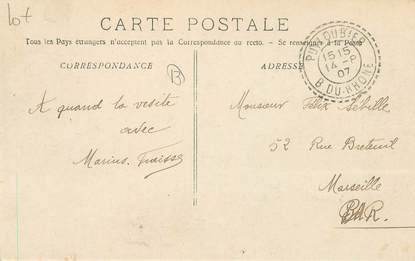 lot
CARTE POSTALE
Tous les Pays étrangers n'acceptent pas la Correspondance au recto. - Se renseigner à la Poste
CORRESPONDANCE
B
ADRESSE
PUYLOUBIER
15 15
14 - 
07
B. DU-RHONE
A quand la visite
avec
Marius
Monsieur Félix
52 Rue Breteuil
Marseille
B.d.R.